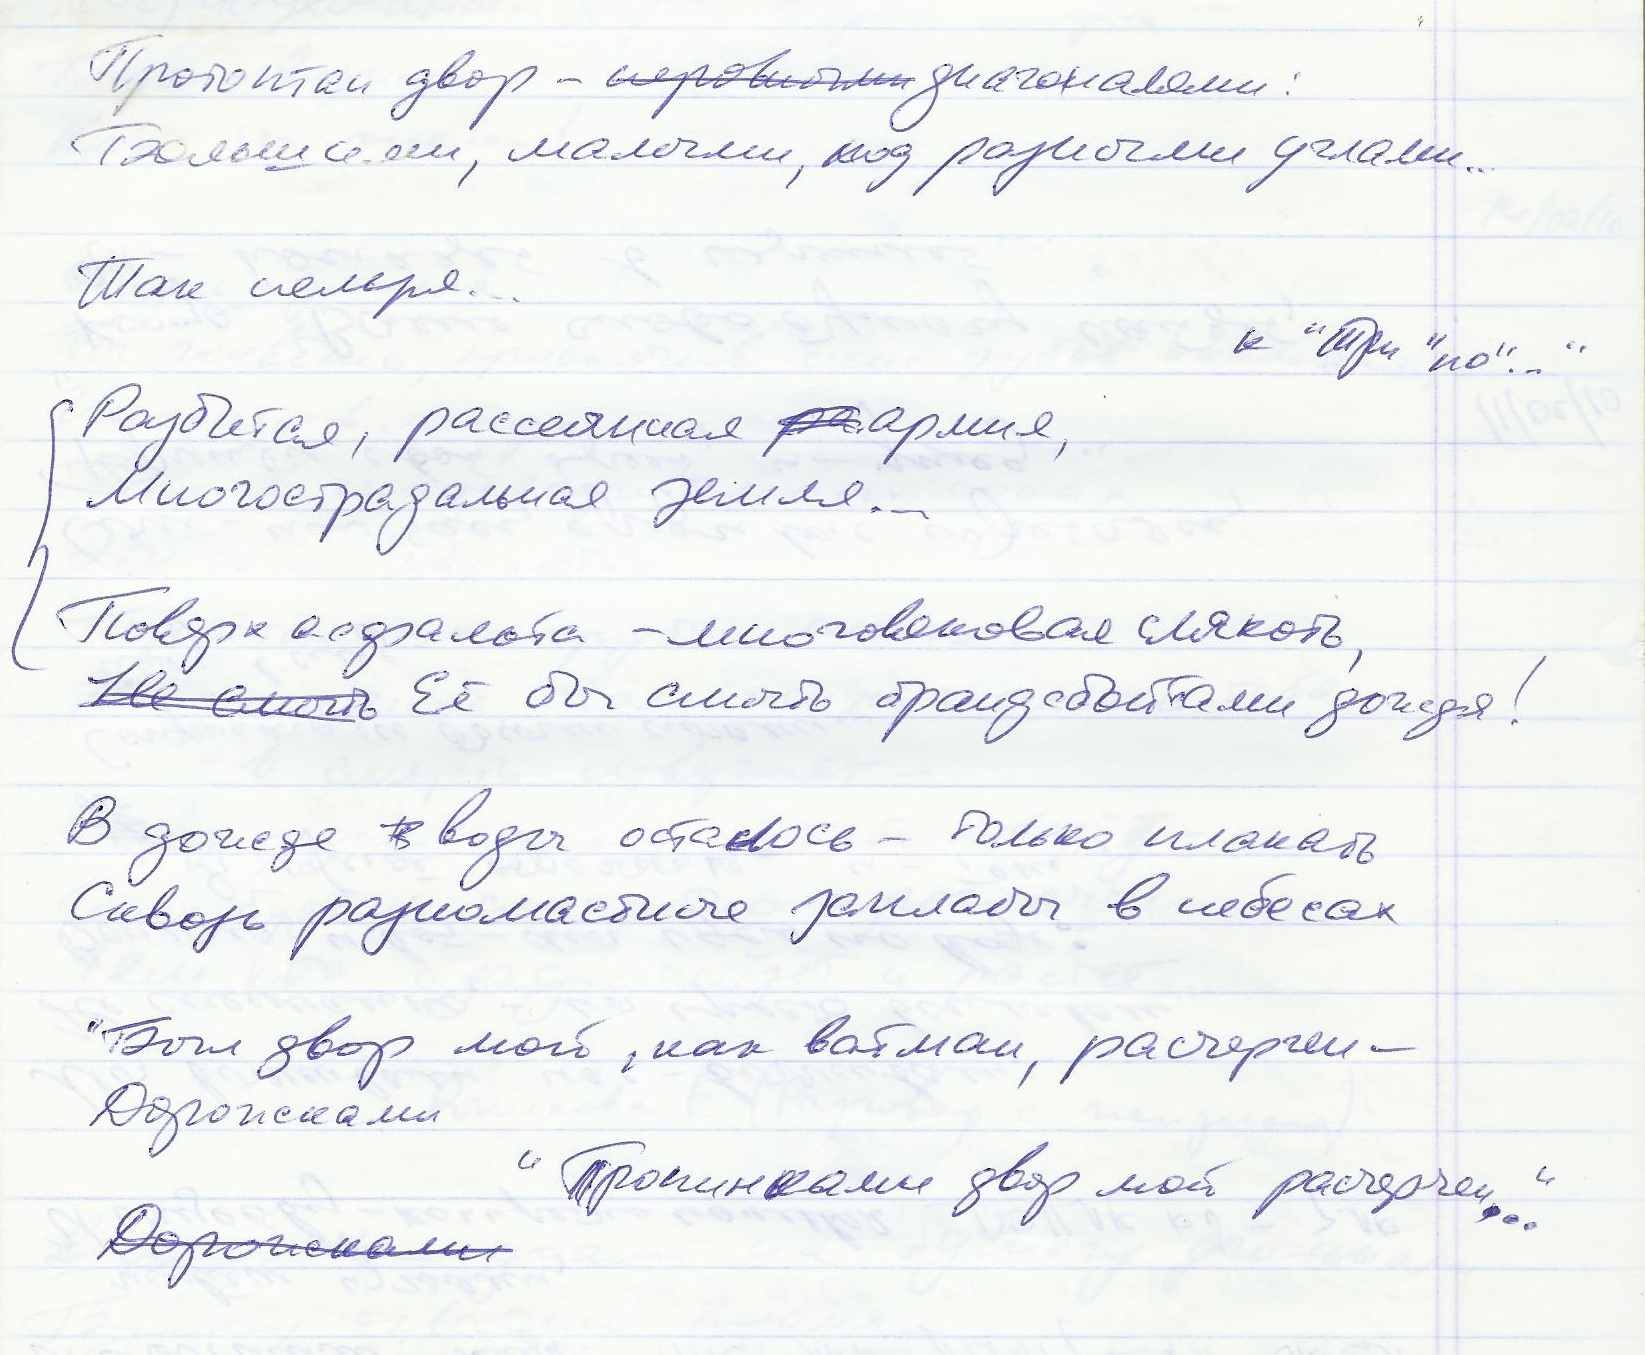 Протоптан двор – неровными диагоналями:
Большими, малыми, под разными углами...
Так нельзя...
к "Три "по"..."
Разбитая, рассеянная армия,
Многострадальная земля...
Поверх асфальта – многовековая слякоть,
Не смыть Её бы смыть брандсбойтами дождя!
В дожде воды осталось – только плакать
Сквозь разномастные заплаты в небесах
"Был двор мой, как ватман, расчерчен –
Дорожками
"Тропинками двор мой расчерчен..."
Дорожками